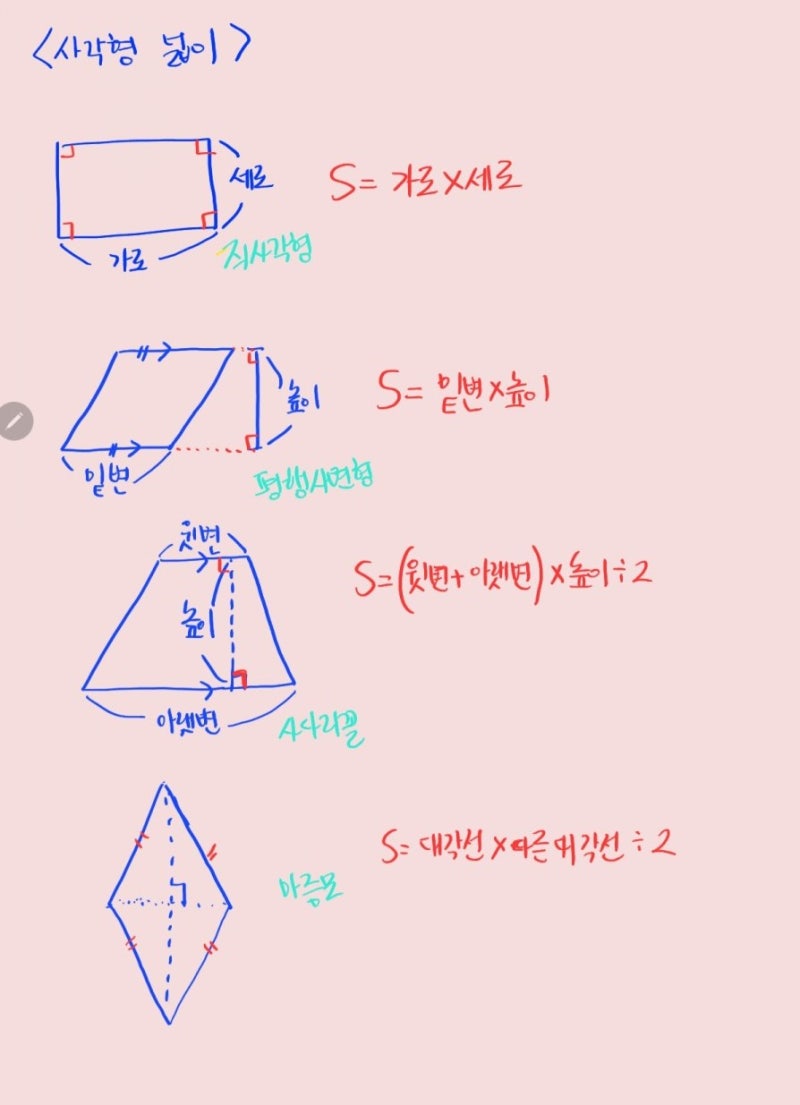 <사각형 넓이>
세로
S= 가로×세로
가로
직사각형
높이
S= 밑변×높이
밑변
평행사변형
윗변
S=(윗변+아랫변)×높이÷2
높이
아랫변
사다리꼴
S= 대각선×다른대각선÷2
마름모